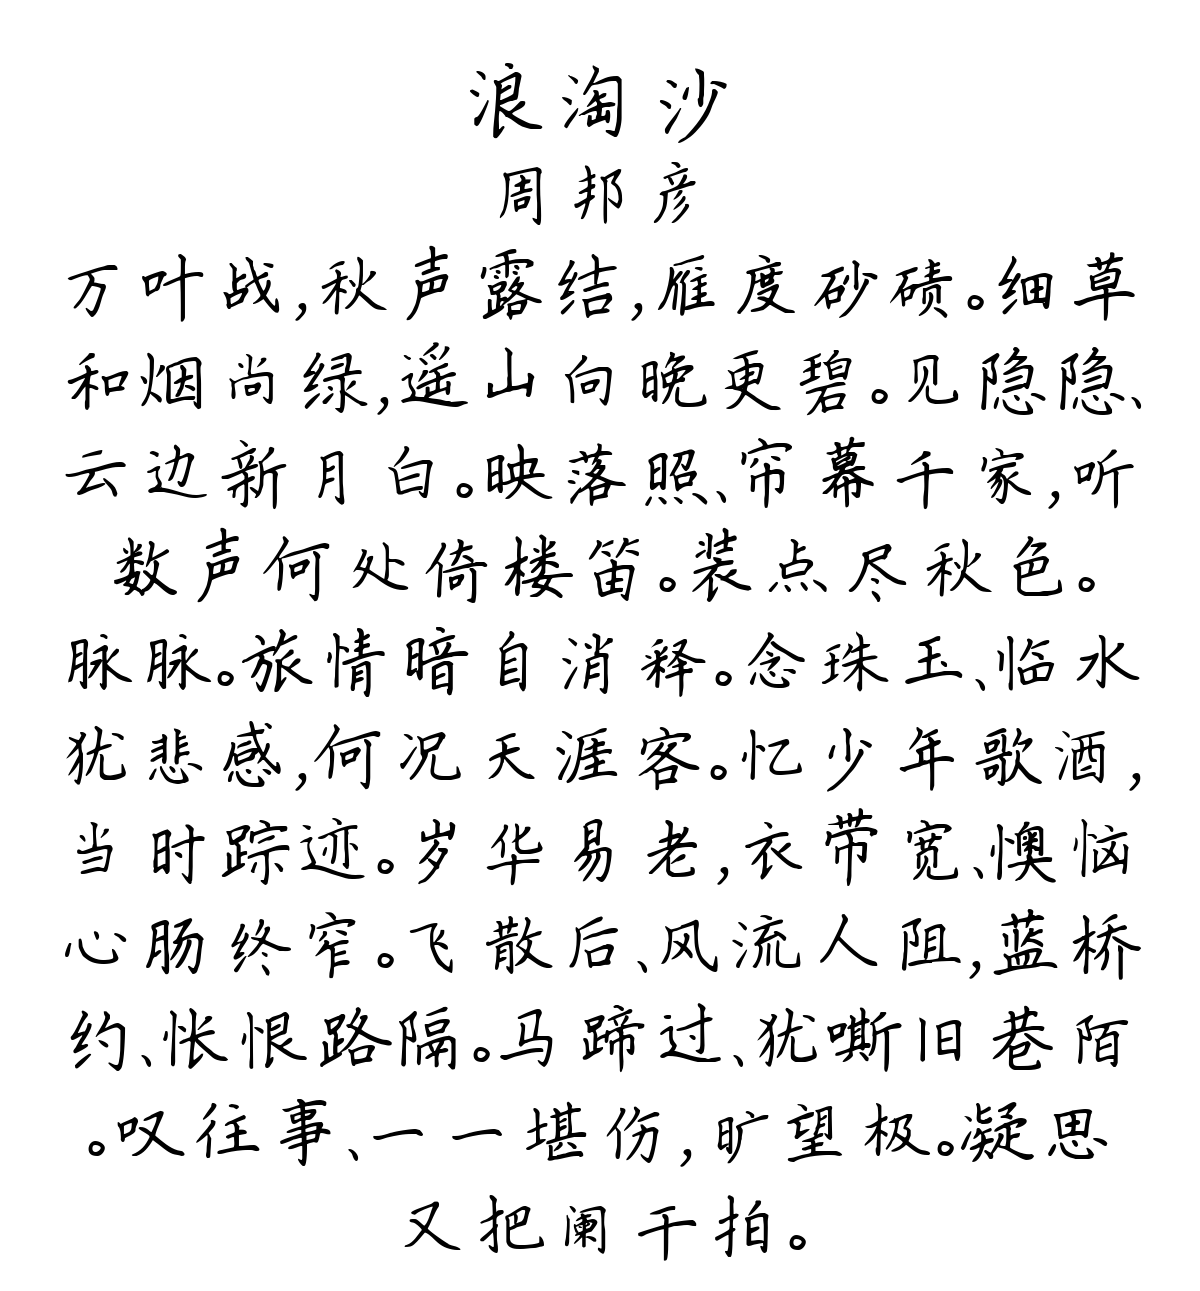 浪淘沙
周邦彦
万叶战,秋声露结,雁度砂碛。细草
和烟尚绿,遥山向晚更碧。见隐隐、
云边新月白。映落照、帘幕千家,听
数声何处倚楼笛。装点尽秋色。
脉脉。旅情暗自消释。念珠玉、临水
犹悲感,何况天涯客。忆少年歌酒,
当时踪迹。岁华易老,衣带宽、懊恼
心肠终窄。飞散后、风流人阻,蓝桥
约、怅恨路隔。马蹄过、犹嘶旧巷陌
。叹往事、一一堪伤,旷望极。凝思
又把阑干拍。